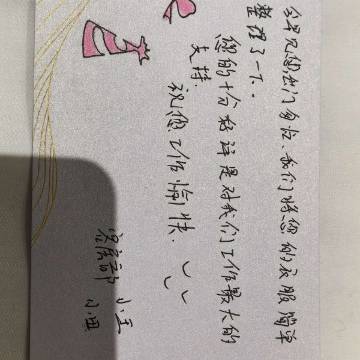 今早见您出门匆忙、我们将您的衣服简单
整理了一下..
您的十分好评是对我们工作最大的
支持.
祝您工作愉快.
客房部 小王
小田